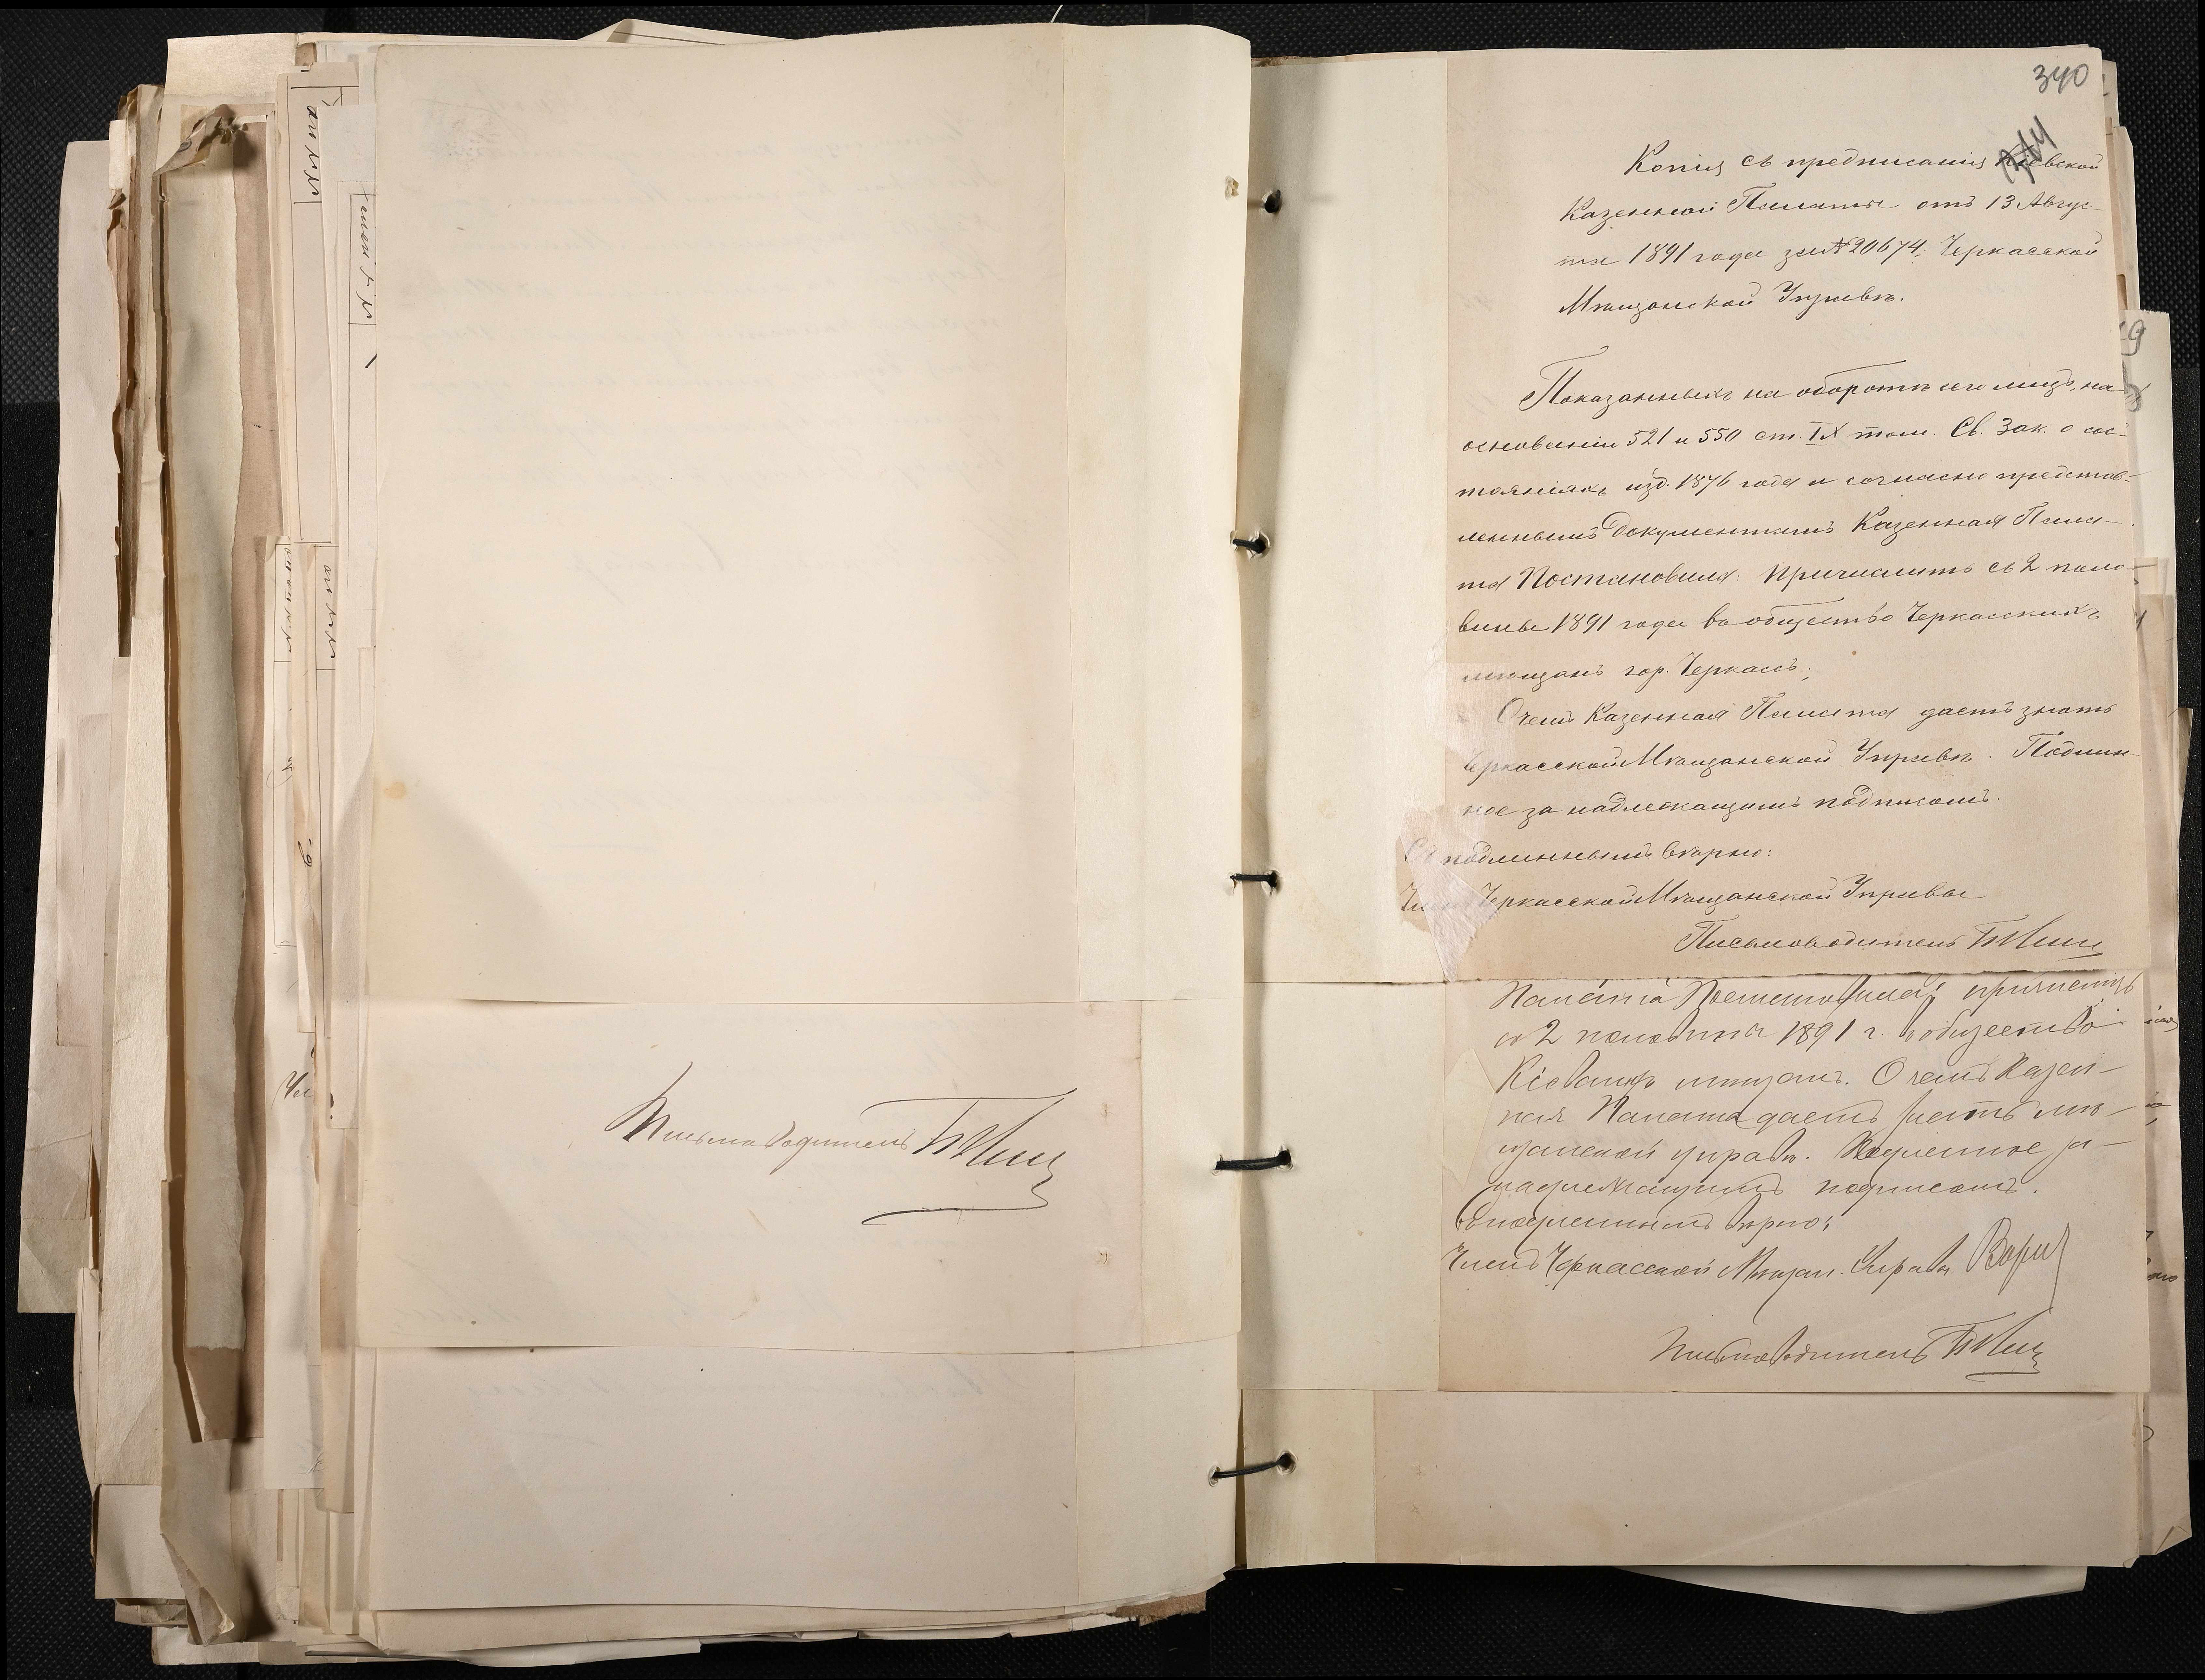 Письмоводитель
340
Копія съ предписанія Кіевской
Казенной Палаты отъ 13 Авгус-
та 1891 года за № 20674, Черкасской
Мѣщанской Управѣ.
Показанныхъ на оборотѣ сего лицъ, на
основаніи 521 и 550 ст. IX том. Св. Зак. о сос-
тояніяхъ изд. 1876 года и согласно представ-
леннымъ документамъ Казенная Пала-
та Постановила: причислить съ 2 поло-
вины 1891 года въ общество Черкасскихъ
мѣщанъ гор. Черкассъ;
О чемъ Казенная Палата даетъ знать
Черкасской Мѣщанской Управѣ. Подлин-
ное за надлежащимъ подписомъ.
Съ подлиннымъ вѣрно:
Членъ Черкасской Мѣщанской Управы
Письмоводитель
Палата Постановила: причислить
со 2 половины 1891 г. въ общество
Кіевскихъ мѣщанъ. О чемъ Казен-
ная Палата даетъ знать мѣ-
щанской управѣ. Подлинное за
надлежащимъ подписомъ.
Съ подлиннымъ вѣрно:
Членъ Черкасской Мѣщан. Управы
Письмоводитель